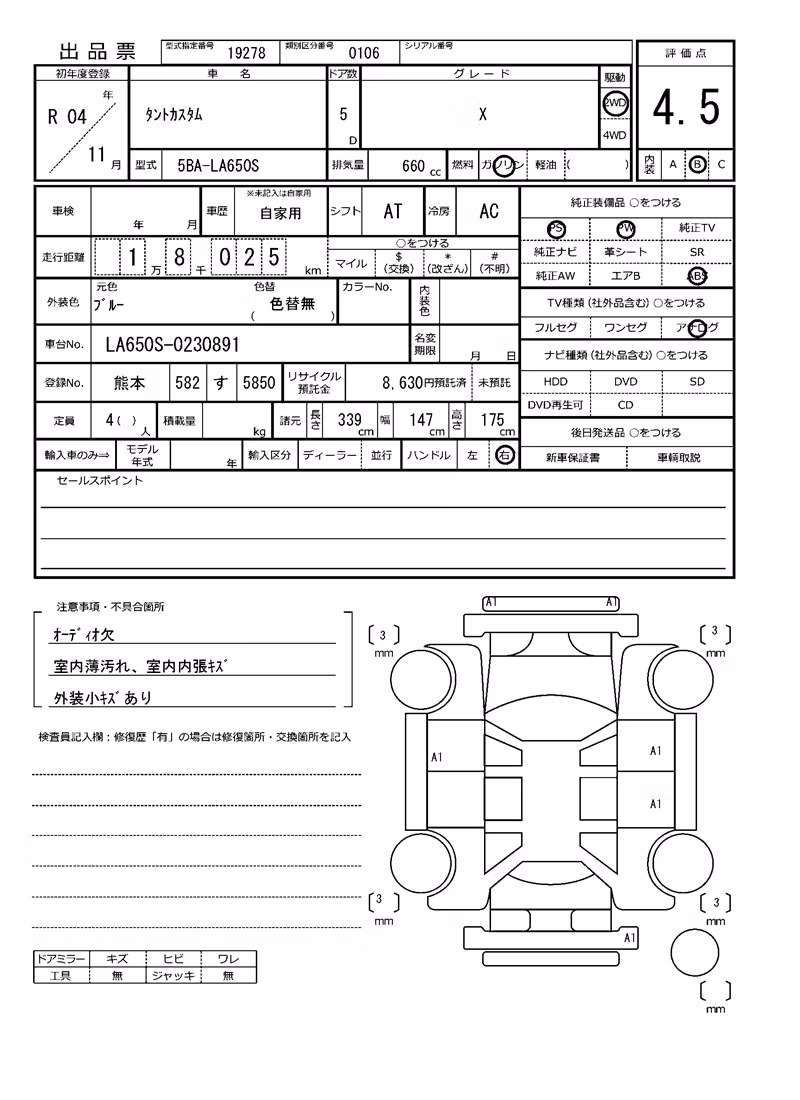 出品票
型式指定番号 19278 類別区分番号 0106 シリアル番号
初年度登録 車 名 ドア数 グレード 駆動
R 04 年 11 月 ﾀﾝﾄｶｽﾀﾑ 5 D X 2WD 4WD
型式 5BA-LA650S 排気量 660 cc 燃料 ガソリン 軽油 ( )
評価点
4.5
内装 A B C
車検 年 月 車歴 ※未記入は自家用 自家用 シフト AT 冷房 AC
走行距離 1 万 8 千 0 2 5 km ○をつける マイル $ (交換) * (改ざん) # (不明)
外装色 元色 ﾌﾞﾙｰ 色替 ( 色替無 ) カラーNo. 内装色
車台No. LA650S-0230891 名変期限 月 日
登録No. 熊本 582 す 5850 リサイクル預託金 8,630円預託済 未預託
定員 4 ( ) 人 積載量 kg 諸元 長さ 339 cm 幅 147 cm 高さ 175 cm
輸入車のみ⇒ モデル年式 年 輸入区分 ディーラー 並行 ハンドル 左 右
純正装備品 ○をつける
PS PW 純正TV
純正ナビ 革シート SR
純正AW エアB ABS
TV種類 (社外品含む) ○をつける
フルセグ ワンセグ アナログ
ナビ種類 (社外品含む) ○をつける
HDD DVD SD
DVD再生可 CD
後日発送品 ○をつける
新車保証書 車輌取説
セールスポイント
注意事項・不具合箇所
ｵｰﾃﾞｨｵ欠
室内薄汚れ、室内内張ｷｽﾞ
外装小ｷｽﾞあり
検査員記入欄：修復歴「有」の場合は修復箇所・交換箇所を記入
ドアミラー キズ ヒビ ワレ
工具 無 ジャッキ 無
A1 A1
3 mm
3 mm
A1
A1
A1
3 mm
3 mm
A1
mm